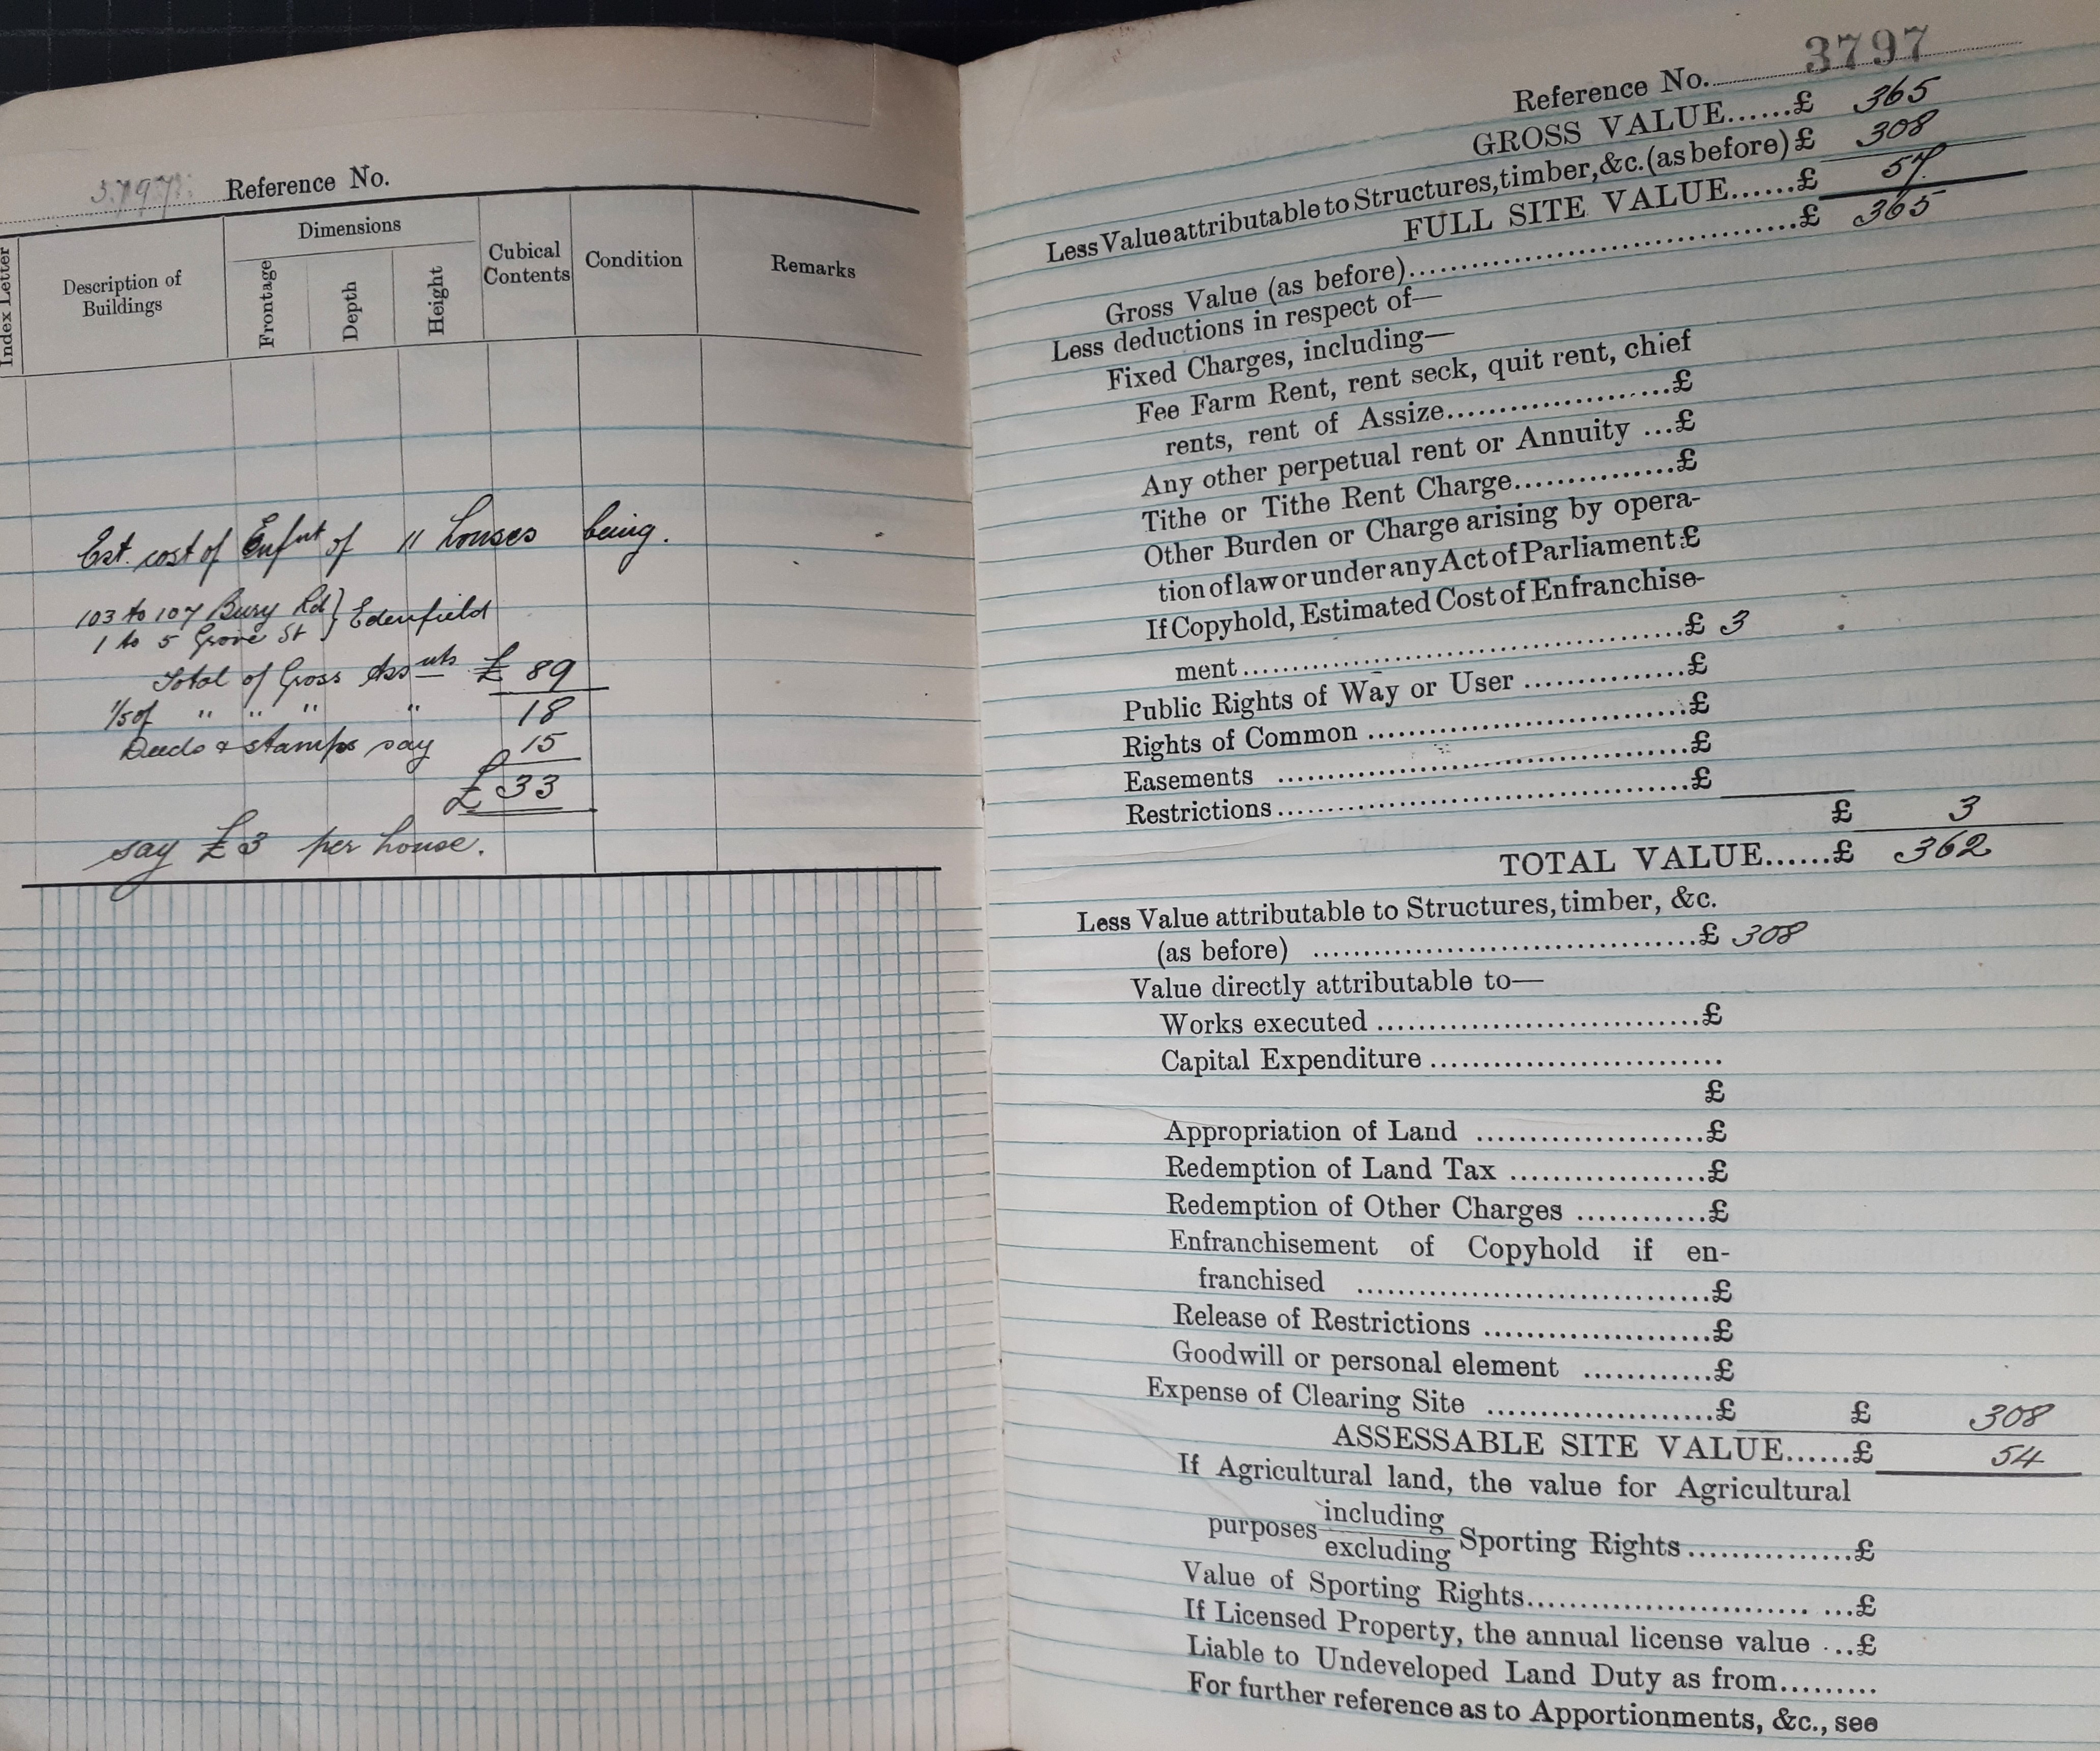 3797 Reference No.
Index Letter
Description of
Buildings
Dimensions
Frontage
Depth
Height
Cubical
Contents
Condition
Remarks
Est. cost of Enfnt of 11 houses being.
103 to 107 Bury Rd } Edenfield
1 to 5 Grove St
Total of Gross Assnts £ 89
1/5 of " " " " 18
Deeds & stamps say 15
£ 33
say £3 per house.
Reference No. 3797
GROSS VALUE......£ 365
Less Value attributable to Structures, timber, &c. (as before) £ 308
FULL SITE VALUE......£ 57
Gross Value (as before)..........£ 365
Less deductions in respect of—
Fixed Charges, including—
Fee Farm Rent, rent seck, quit rent, chief
rents, rent of Assize..........£
Any other perpetual rent or Annuity ...£
Tithe or Tithe Rent Charge..........£
Other Burden or Charge arising by opera-
tion of law or under any Act of Parliament £
If Copyhold, Estimated Cost of Enfranchise-
ment..........£ 3
Public Rights of Way or User ..........£
Rights of Common ..........£
Easements ..........£
Restrictions..........£
£ 3
TOTAL VALUE......£ 362
Less Value attributable to Structures, timber, &c.
(as before) ..........£ 308
Value directly attributable to—
Works executed ..........£
Capital Expenditure ..........
£
Appropriation of Land ..........£
Redemption of Land Tax ..........£
Redemption of Other Charges ..........£
Enfranchisement of Copyhold if en-
franchised ..........£
Release of Restrictions ..........£
Goodwill or personal element ..........£
Expense of Clearing Site ..........£ £ 308
ASSESSABLE SITE VALUE......£ 54
If Agricultural land, the value for Agricultural
purposes including
excluding Sporting Rights..........£
Value of Sporting Rights..........£
If Licensed Property, the annual license value ...£
Liable to Undeveloped Land Duty as from.........
For further reference as to Apportionments, &c., see